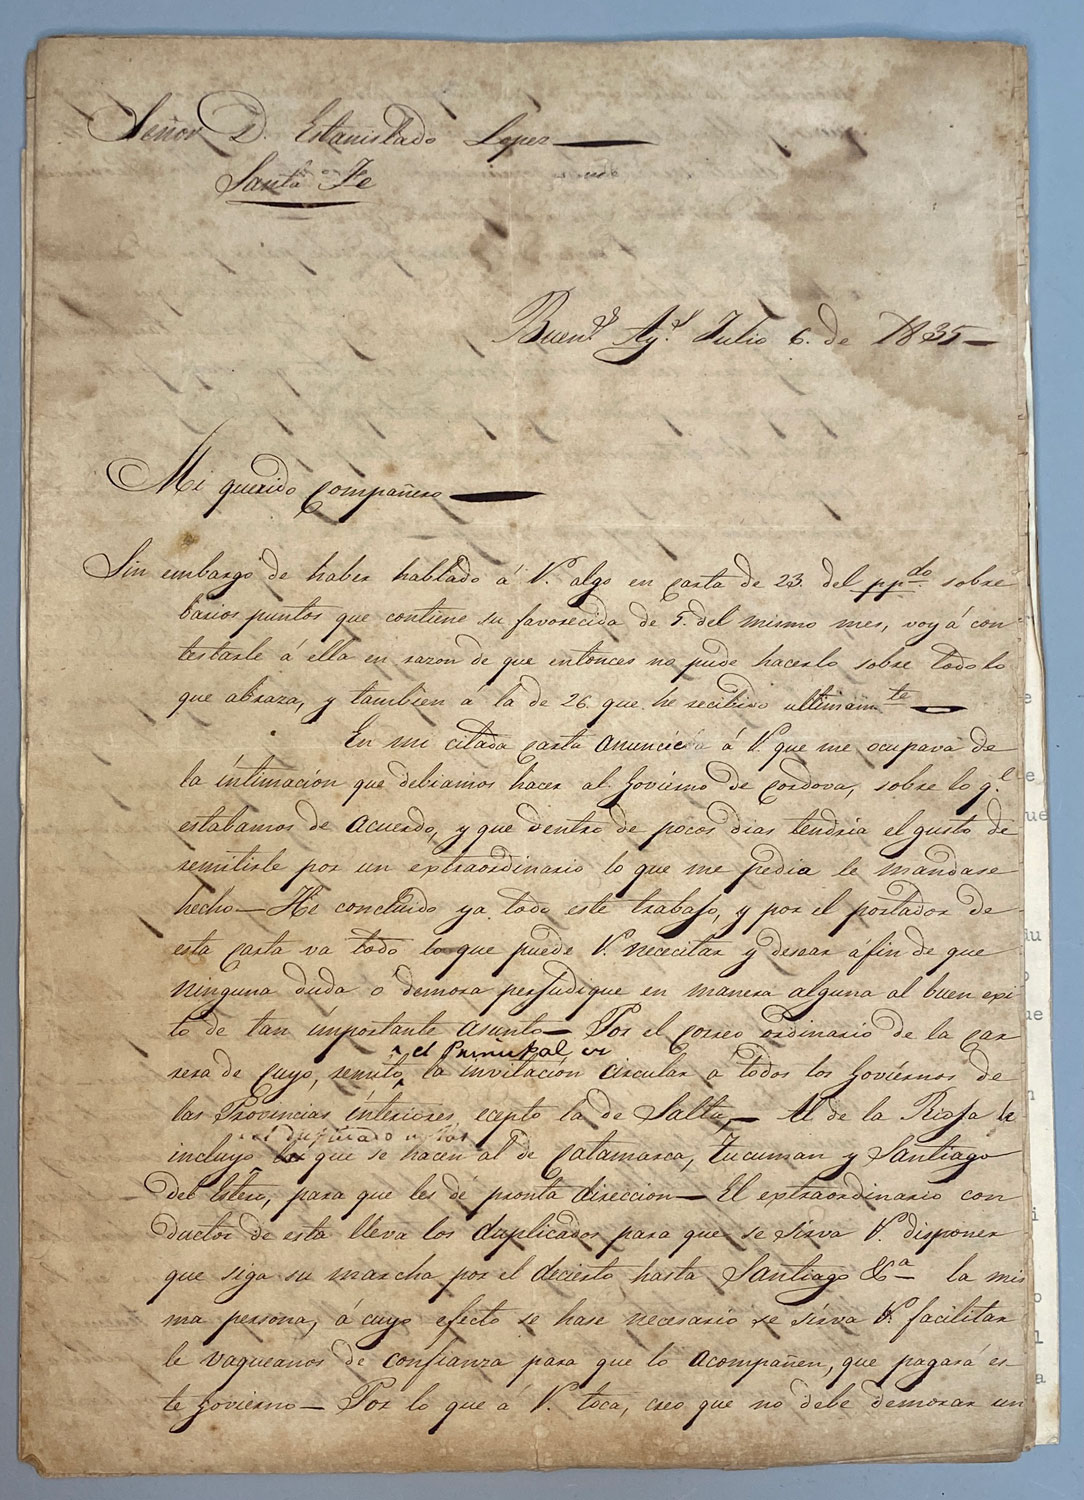 Señor D. Estanislado Lopez
Santa Fe
Buen.s Ay.s Julio 6. de 1835
Mi querido Compañero
Sin embargo de haber hablado á V. algo en carta de 23. del ppdo. sobre
barios puntos que contiene su favorecida de 5. del mismo mes, voy á con
testarle á ella en razon de que entonces no pude hacerlo sobre todo lo
que abraza, y tambien á la de 26. que he recibido ultimamte
En mi citada carta anuncié á V. que me ocupava de
la intimacion que debiamos hacer al Govierno de Cordova, sobre lo q.l
estabamos de acuerdo, y que dentro de pocos dias tendria el gusto de
remitirle por un extraordinario lo que me pedia le mandase
hecho — He concluido ya todo este trabajo, y por el portador de
esta carta va todo lo que puede V. nececitar y desear afin de que
ninguna duda o demora perjudique en manera alguna al buen exi
to de tan importante asunto — Por el Correo ordinario de la Car
el Principal
rera de Cuyo, remito la invitacion circular a todos los Goviernos de
las Provincias interiores, ecepto la de Salta, — Al de la Rioja le
incluyo que se hacen al de Catamarca, Tucuman y Santiago
del Estero, para que les dé pronta direccion — El extraordinario con
ductor de esta lleva los duplicados para que se sirva V. disponer
que siga su marcha por el decierto hasta Santiago &a la mis
ma persona, á cuyo efecto se hase necesario se sirva V. facilitar
le vaqueanos de confianza para que lo acompañen, que pagará es
te Govierno — Por lo que á V. toca, creo que no debe demorar un